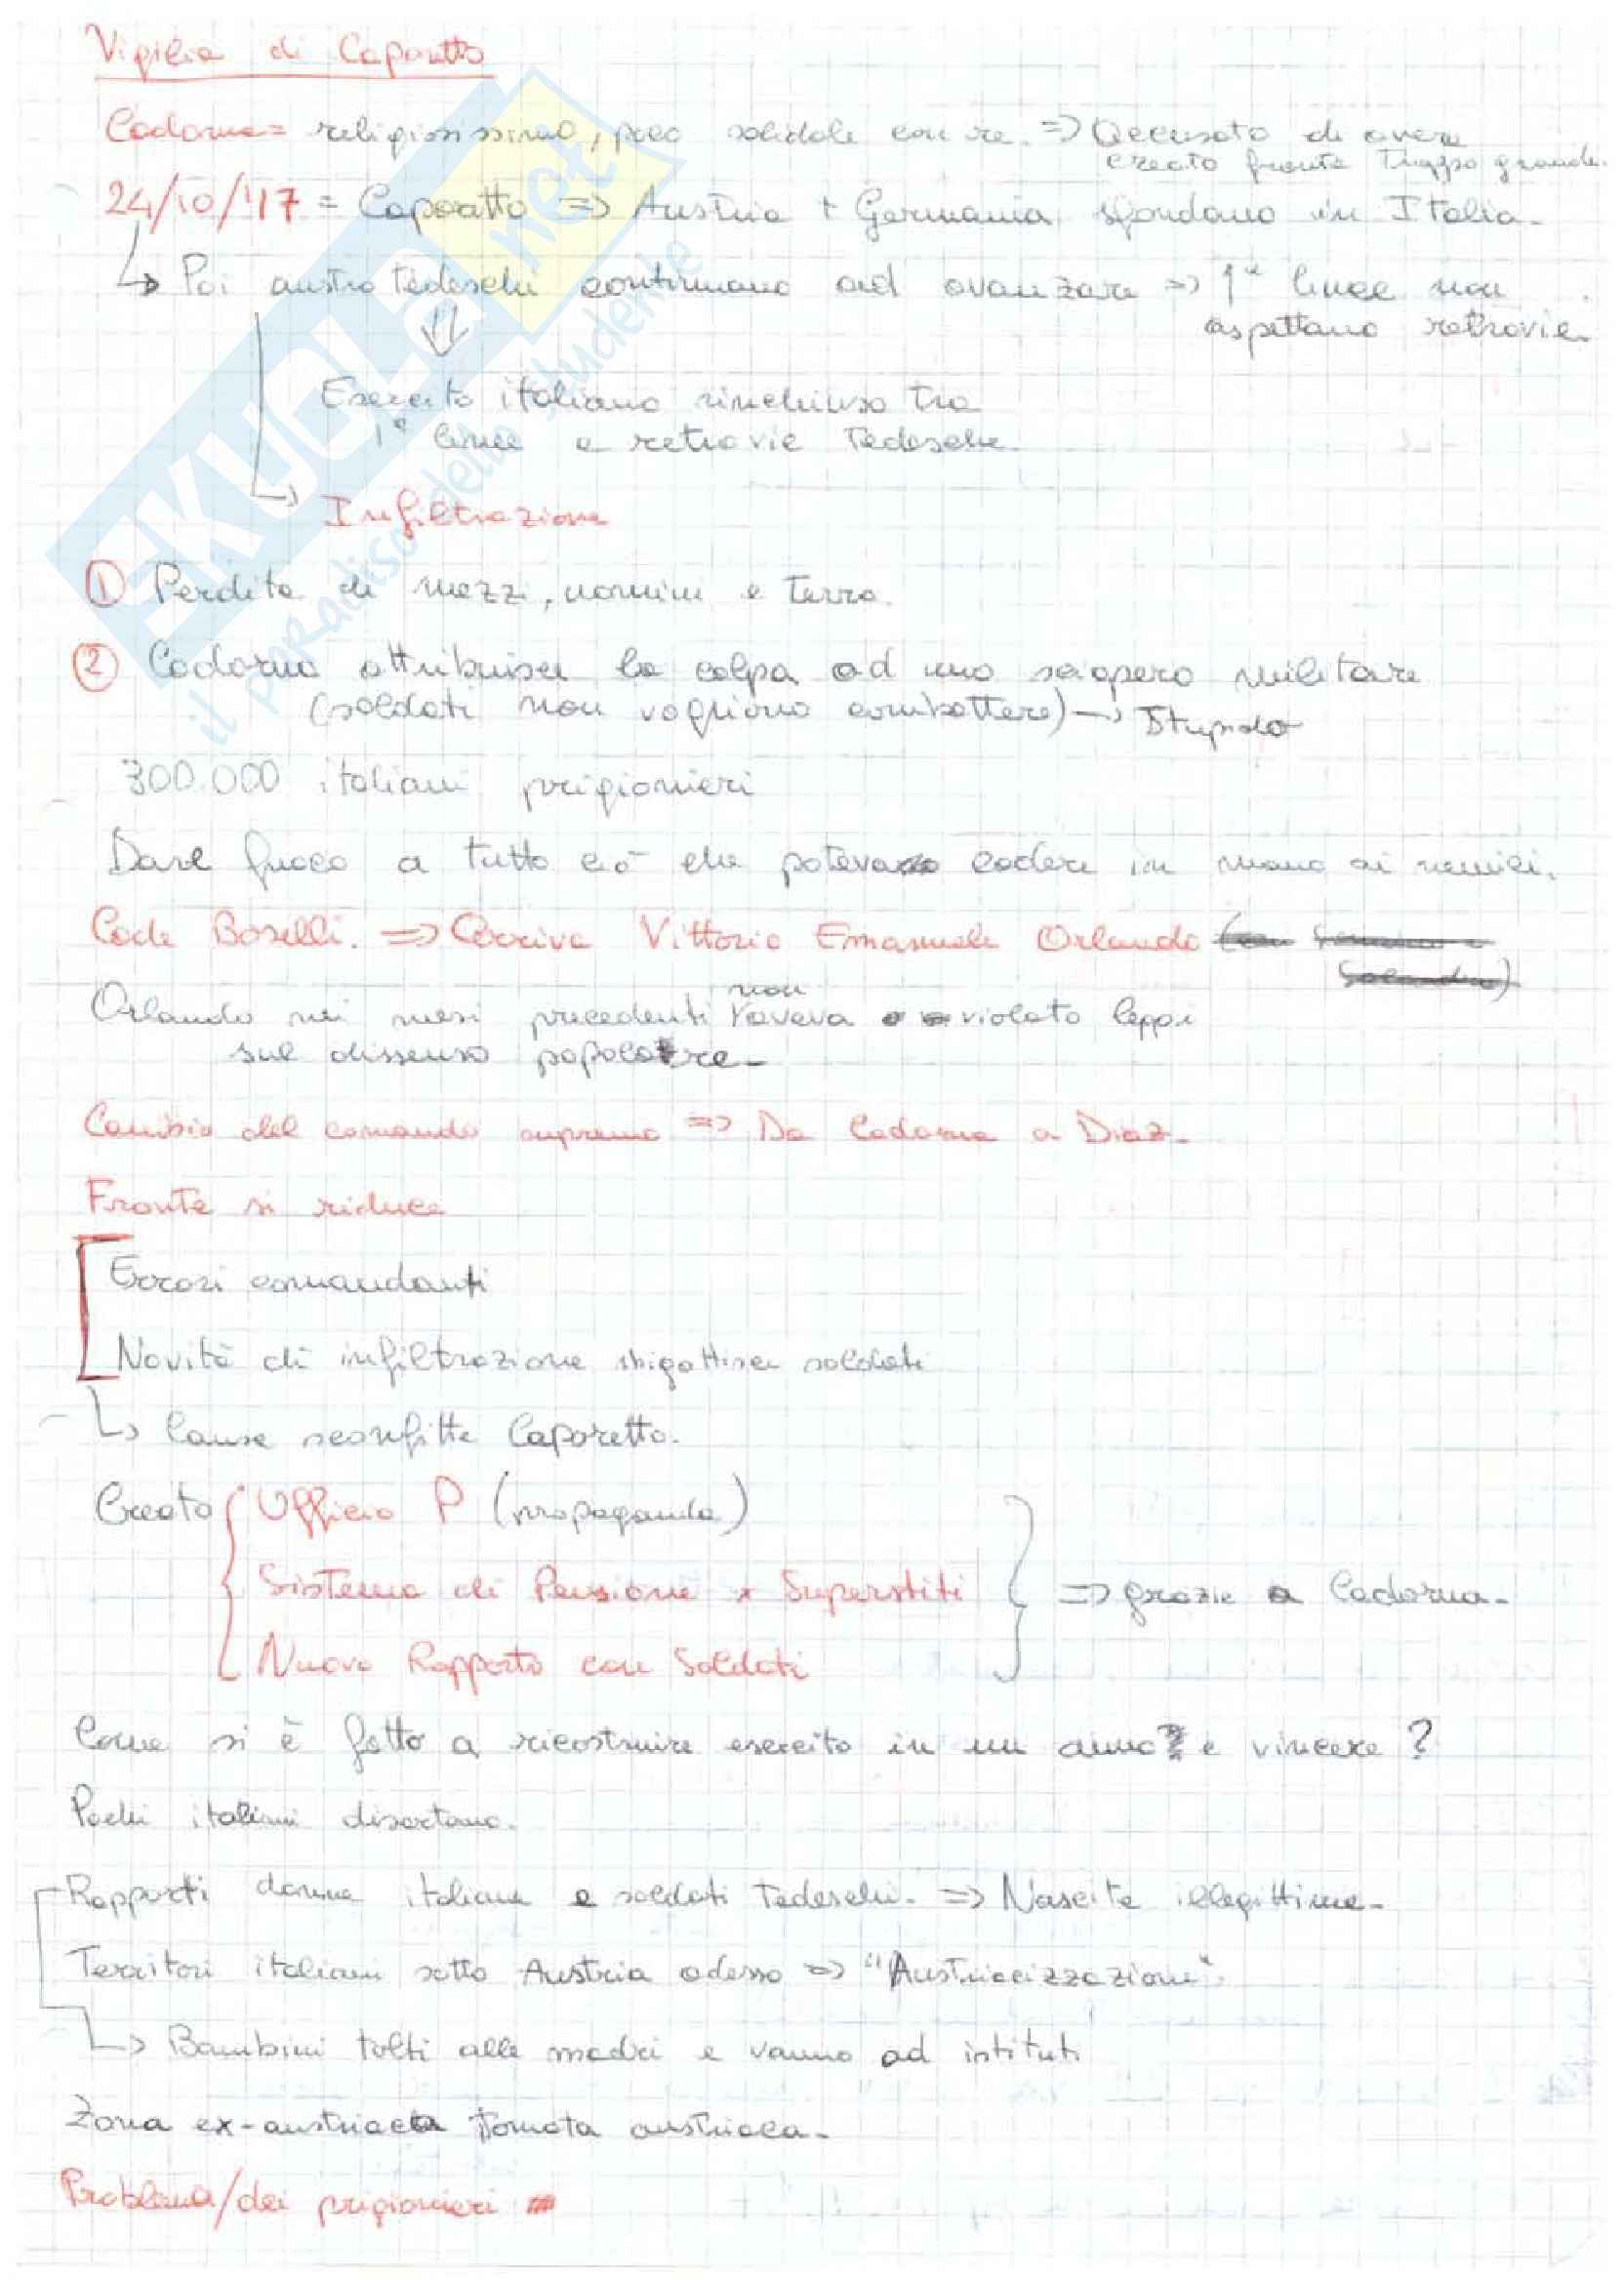 Vigilia di Caporetto
Cadorna = religiosissimo, poco solidale con re. => Accusato di avere
creato fronte troppo grande.
24/10/'17 = Caporetto => Austria + Germania sfondano in Italia.
↳ Poi austro tedeschi continuano ad avanzare => 1ª linee non
aspettano retrovie.
Esercito italiano rinchiuso tra
1ª linee e retrovie tedesche.
↳ Infiltrazione
① Perdita di mezzi, uomini e terra.
② Cadorna attribuisce la colpa ad uno sciopero militare
(soldati non vogliono combattere) → Stupido
300.000 italiani prigionieri
Dare fuoco a tutto ciò che poteva cadere in mano ai nemici.
Cade Boselli. => Arriva Vittorio Emanuele Orlando (con Sonnino e
Salandra)
Orlando nei mesi precedenti non aveva violato leggi
sul dissenso popolare.
Cambio del comando supremo => Da Cadorna a Diaz.
Fronte si riduce
Errori comandanti
Novità di infiltrazione sbigottisce soldati
↳ Cause sconfitta Caporetto.
Creato { Ufficio P (propaganda)
Sistema di Pensione x Superstiti } => grazie a Cadorna.
Nuovo Rapporto con Soldati
Come si è fatto a ricostruire esercito in un anno e vincere ?
Pochi italiani disertano.
Rapporti donne italiane e soldati tedeschi. => Nascite illegittime.
Territori italiani sotto Austria adesso => "Austriacizzazione".
↳ Bambini tolti alle madri e vanno ad istituti
Zona ex-austriaca tornata austriaca.
Problema/dei prigionieri
SKUOLA.net
il paradiso dello studente